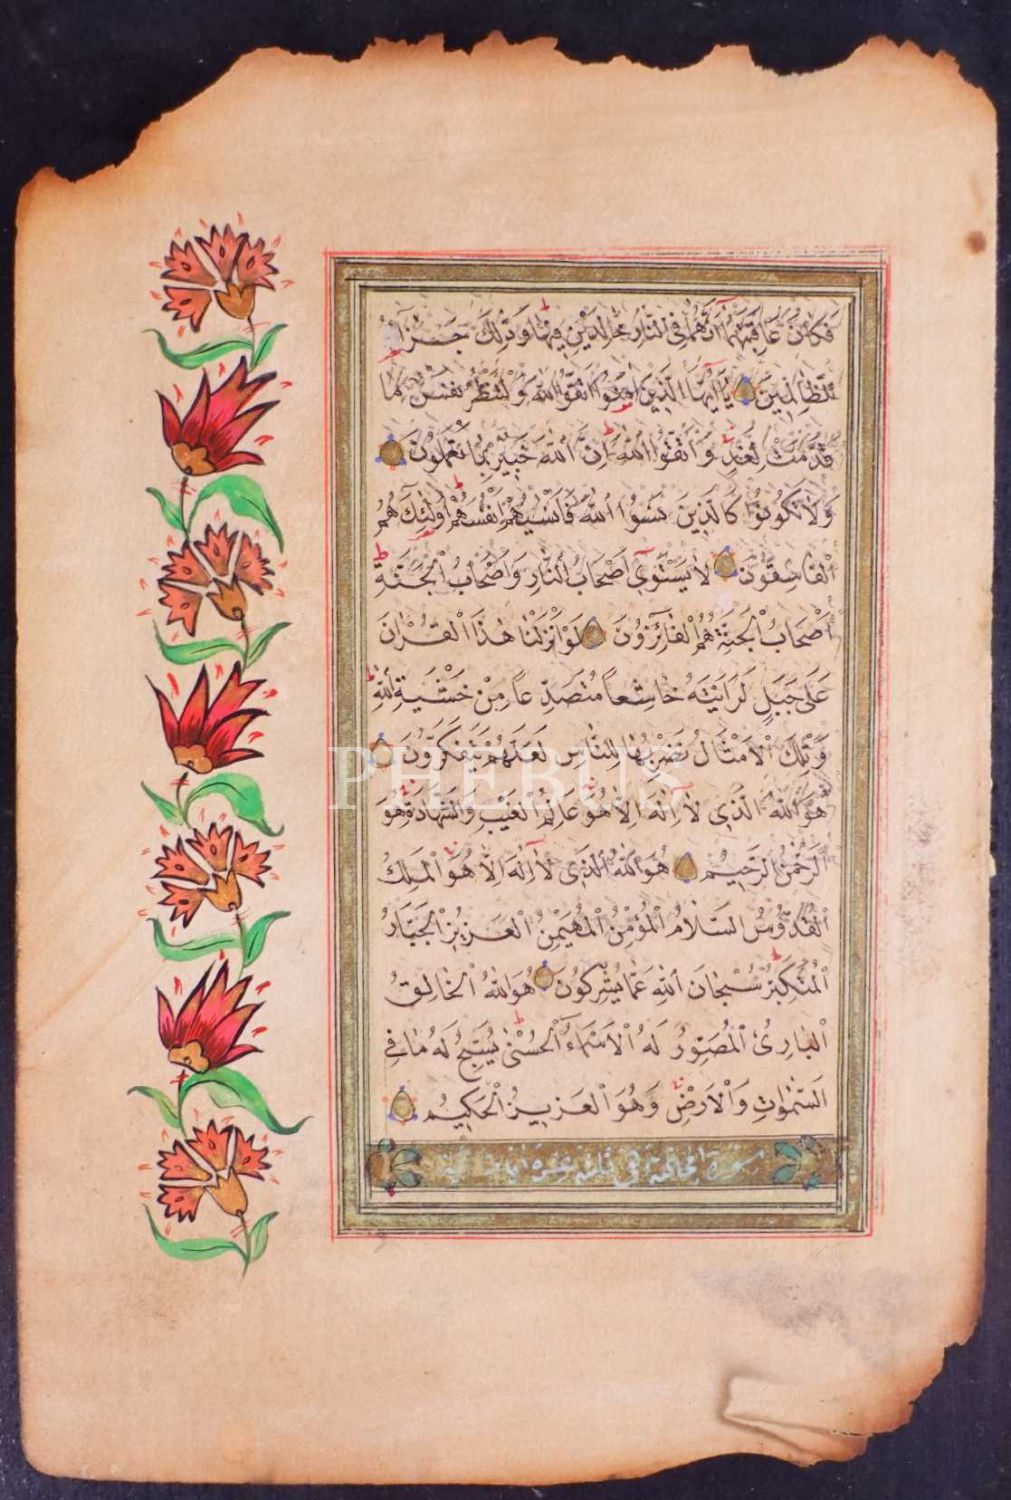 فَكَانَ عَاقِبَتَهُمَا أَنَّهُمَا فِي النَّارِ خَالِدَيْنِ فِيهَا وَذَلِكَ جَزَاءُ
الظَّالِمِينَ يَا أَيُّهَا الَّذِينَ آمَنُوا اتَّقُوا اللَّهَ وَلْتَنْظُرْ نَفْسٌ مَا
قَدَّمَتْ لِغَدٍ وَاتَّقُوا اللَّهَ إِنَّ اللَّهَ خَبِيرٌ بِمَا تَعْمَلُونَ
وَلَا تَكُونُوا كَالَّذِينَ نَسُوا اللَّهَ فَأَنْسَيهُمْ أَنْفُسَهُمْ أُولَئِكَ هُمُ
الْفَاسِقُونَ لَا يَسْتَوِي أَصْحَابُ النَّارِ وَأَصْحَابُ الْجَنَّةِ
أَصْحَابُ الْجَنَّةِ هُمُ الْفَائِزُونَ لَوْ أَنْزَلْنَا هَذَا الْقُرْآنَ
عَلَى جَبَلٍ لَرَأَيْتَهُ خَاشِعاً مُتَصَدِّعاً مِنْ خَشْيَةِ اللَّهِ
وَتِلْكَ الْأَمْثَالُ نَضْرِبُهَا لِلنَّاسِ لَعَلَّهُمْ يَتَفَكَّرُونَ
PHEBUS
هُوَ اللَّهُ الَّذِي لَا إِلَهَ إِلَّا هُوَ عَالِمُ الْغَيْبِ وَالشَّهَادَةِ هُوَ
الرَّحْمَنُ الرَّحِيمُ هُوَ اللَّهُ الَّذِي لَا إِلَهَ إِلَّا هُوَ الْمَلِكُ
الْقُدُّوسُ السَّلَامُ الْمُؤْمِنُ الْمُهَيْمِنُ الْعَزِيزُ الْجَبَّارُ
الْمُتَكَبِّرُ سُبْحَانَ اللَّهِ عَمَّا يُشْرِكُونَ هُوَ اللَّهُ الْخَالِقُ
الْبَارِئُ الْمُصَوِّرُ لَهُ الْأَسْمَاءُ الْحُسْنَى يُسَبِّحُ لَهُ مَا فِي
السَّمَوَاتِ وَالْأَرْضِ وَهُوَ الْعَزِيزُ الْحَكِيمُ
سورة الممتحنة ثلثة عشرة آيات